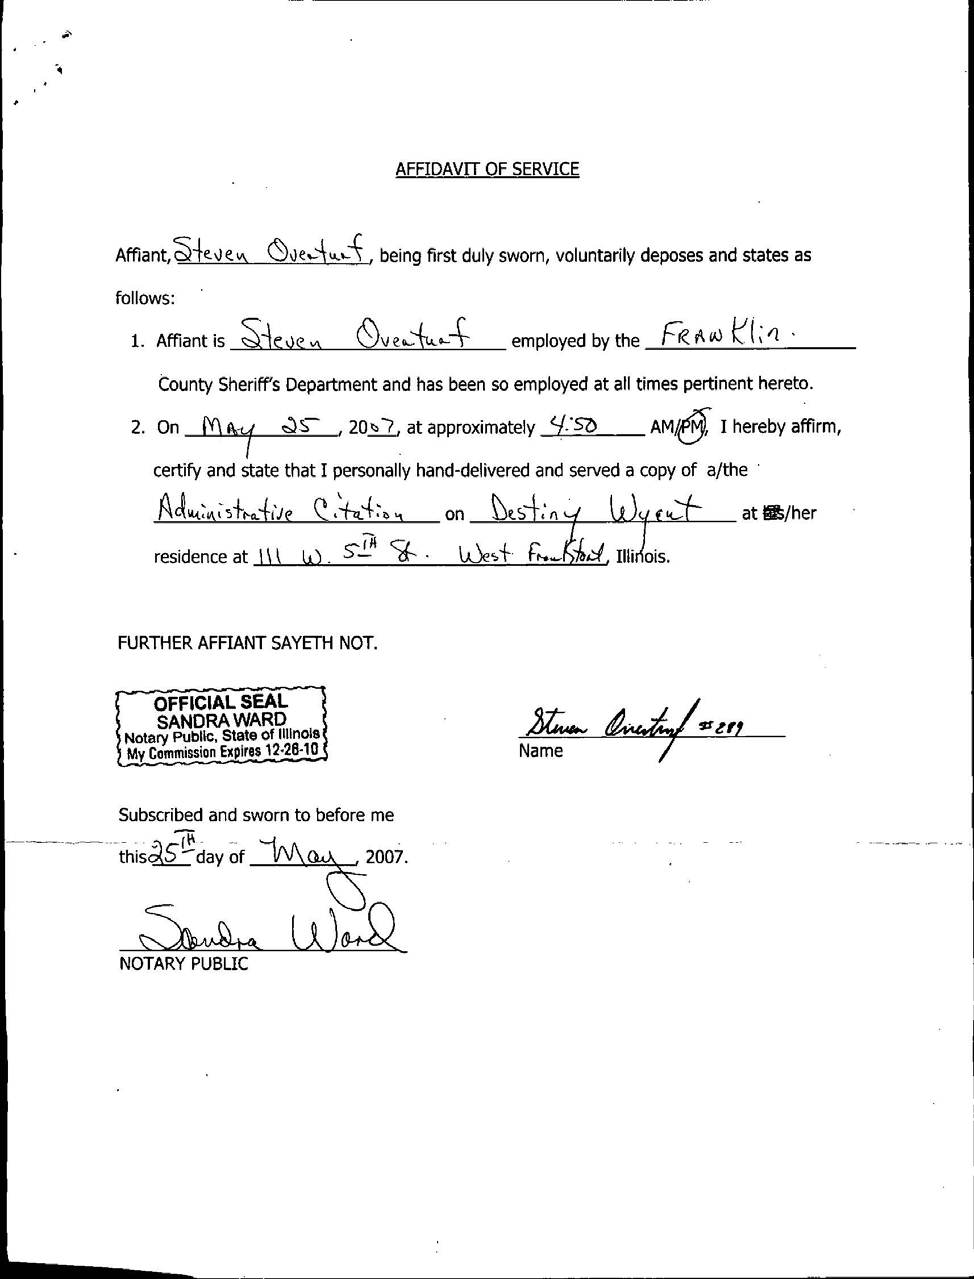 AFFIDAVIT OF SERVICE
Affiant, Steven Overturf, being first duly sworn, voluntarily deposes and states as
follows:
1. Affiant is Steven Overturf employed by the FRANKlin.
County Sheriff's Department and has been so employed at all times pertinent hereto.
2. On MAy 25, 2007, at approximately 4:50 AM/PM, I hereby affirm,
certify and state that I personally hand-delivered and served a copy of a/the
Administrative Citation on Destiny Wyent at /her
residence at 111 W. 5TH St. West Frankfort, Illinois.
FURTHER AFFIANT SAYETH NOT.
OFFICIAL SEAL
SANDRA WARD
Notary Public, State of Illinois
My Commission Expires 12-26-10
Steven Overturf #289
Name
Subscribed and sworn to before me
this 25TH day of May, 2007.
Sandra Ward
NOTARY PUBLIC